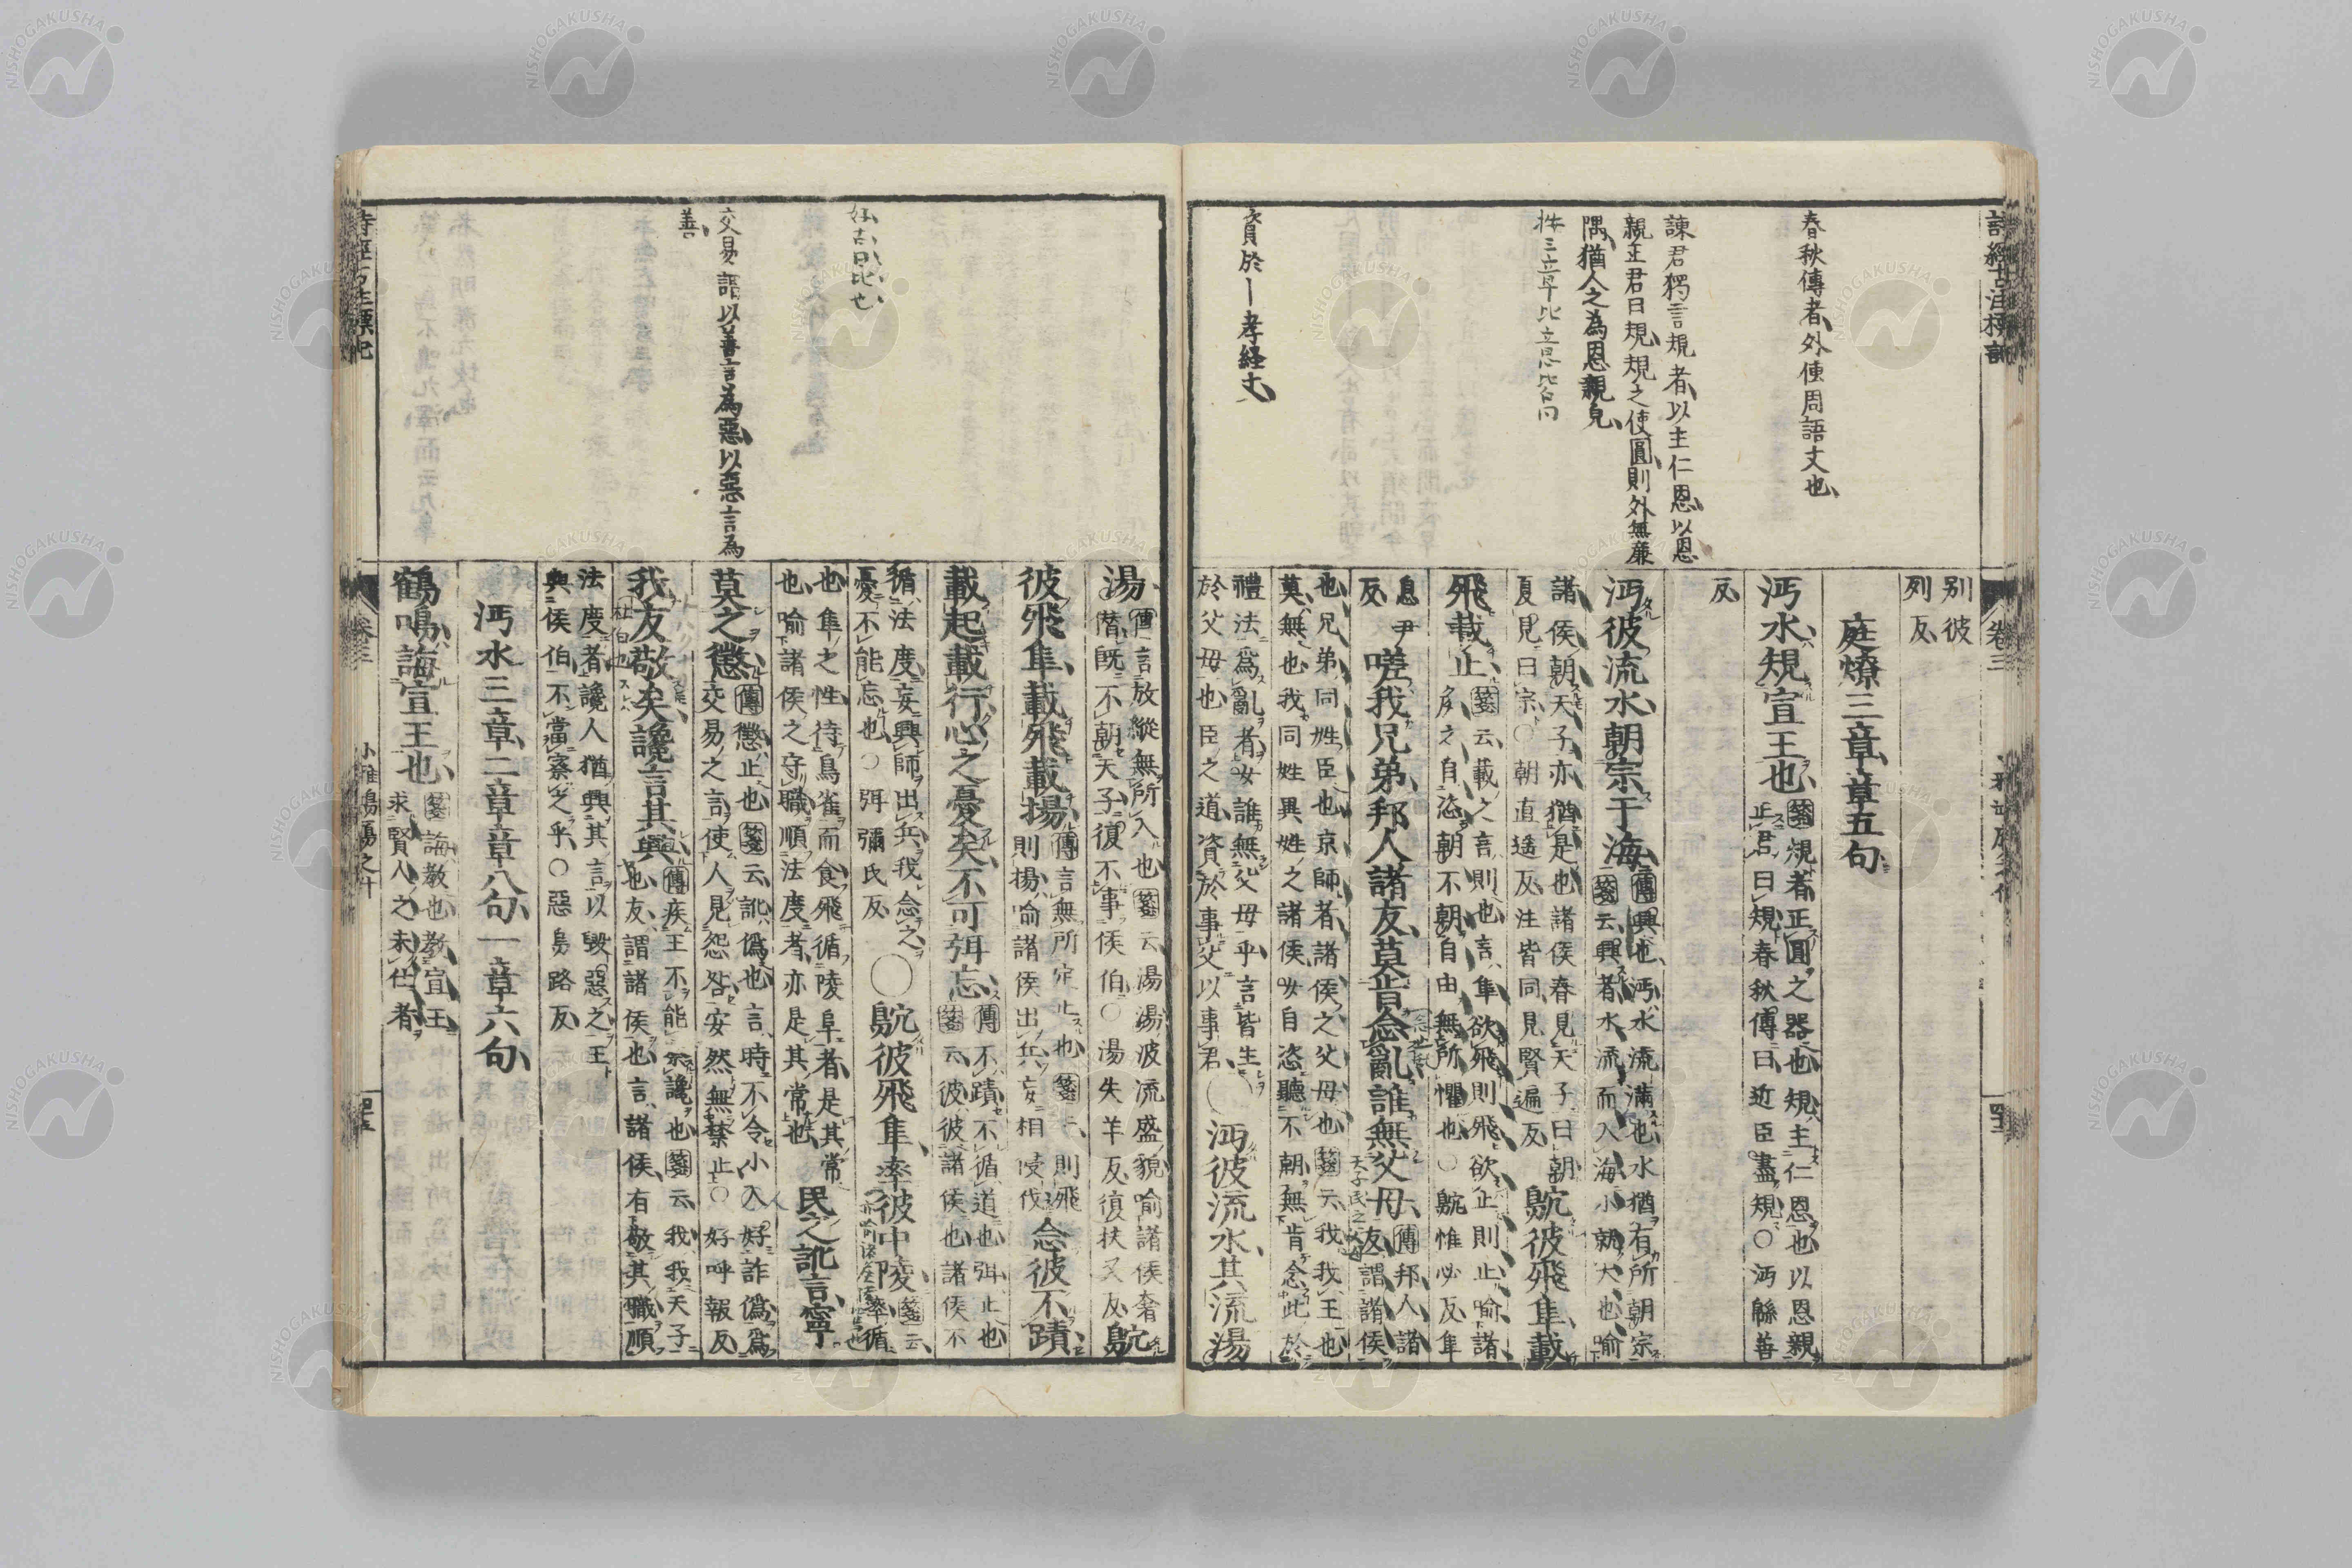 春秋傳者、外使周語文也、
諫君獨言規者、以主仁恩、以恩
親正君曰規、規之使圓、則外無廉
隅、猶人之為恩親皃、
資於〡孝経丈、
別彼
列反
庭燎三章章五句
沔水規宣王也
箋規者正圓之器也規主仁恩也以恩親
正君曰規春秋傳曰近臣盡規○沔緜善
反
沔彼流水朝宗于海
傳興也沔水流滿也水猶有所朝宗
箋云興者水流而入海小就大也喻
諸侯朝天子亦猶是也諸侯春見天子曰朝
夏見曰宗○朝直遥反注皆同見賢遍反
鴥彼飛隼載
飛載止
箋云載之言則也言隼欲飛則飛欲止則止喻諸
侯之自恣朝不朝自由無所懼也○鴥惟必反隼
息尹
反
嗟我兄弟邦人諸友莫肯念亂誰無父母
傳邦人諸
友謂諸侯
也兄弟同姓臣也京師者諸侯之父母也箋云我我王也
莫無也我同姓異姓之諸侯女自恣聽不朝無肯念此於
禮法爲亂者女誰無父母乎言皆生
於父母也臣之道資於事父以事君
○沔彼流水其流湯
湯
傳言放縱無所入也箋云湯湯波流盛貌喻諸侯奢
僭既不朝天子復不事侯伯○湯失羊反復扶又反
鴥
彼飛隼載飛載揚
傳言無所定止也箋云則飛
則揚喻諸侯出兵妄相侵伐
念彼不蹟
載起載行心之憂矣不可弭忘
傳不蹟不循道也弭止也
箋云彼彼諸侯也諸侯不
循法度妄興師出兵我念之
憂不能忘也○弭彌氏反
○鴥彼飛隼率彼中陵
箋云
率循
也隼之性待鳥雀而食飛循陵阜者是其常
也喻諸侯之守職順法度者亦是其常也
民之訛言寧
莫之懲
傳懲止也箋云訛僞也言時不令小人好詐僞爲
交易之言使人見怨咎安然無禁止○好呼報反
我友敬矣讒言其興
傳疾王不能察讒也箋云我我天子
也友謂諸侯也言諸侯有敬其職順
法度者讒人猶興其言以毀惡之王
與侯伯不當察之乎○惡烏路反
沔水三章二章章八句一章六句
鶴鳴誨宣王也
箋誨教也教宣王
求賢人之未仕者
交易謂以善言為惡、以惡言為
善、
卷三
小雅鴻鴈之什